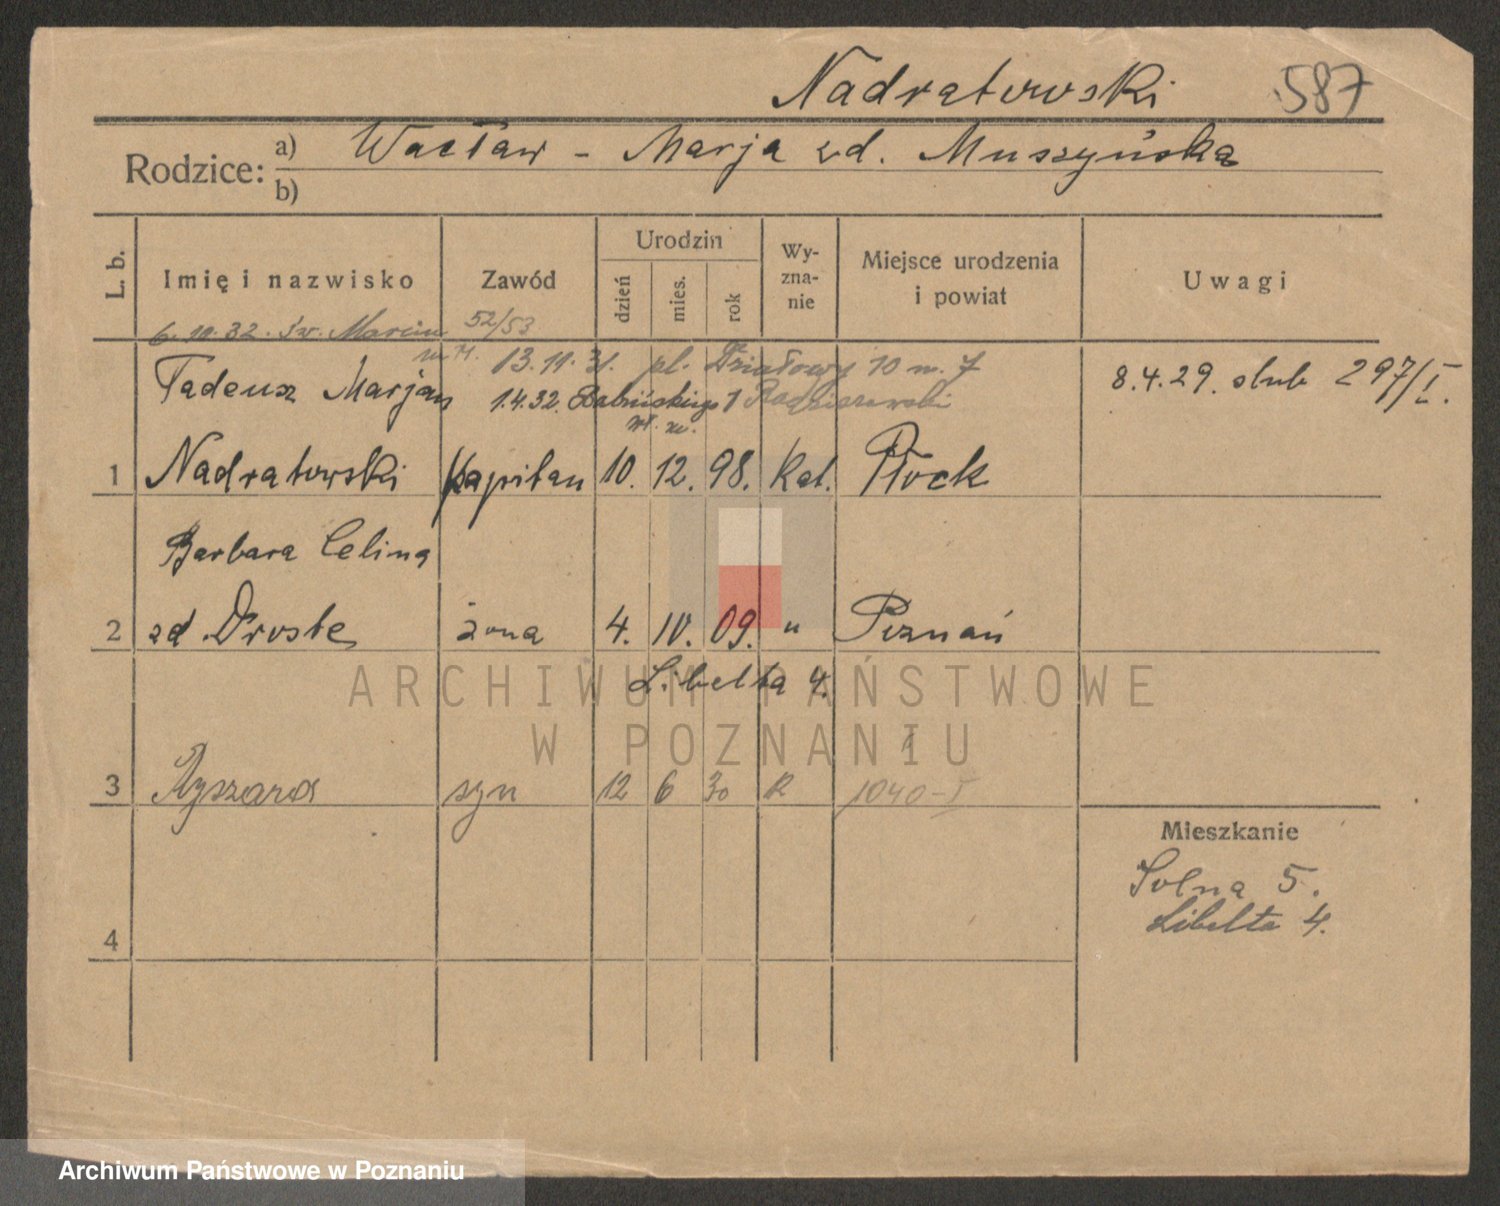 Nadratowski 587
Rodzice: a) Wacław - Marja zd. Muszyńska
b)
L. b. Imię i nazwisko Zawód Urodzin dzień mies. rok Wy-zna-nie Miejsce urodzenia i powiat Uwagi
6. 10. 32. Św. Marcin 52/53
13.11.31. pl. Działowy 10 m. 7
Tadeusz Marjan 1.4.32. 1 Radziszewski 8.4.29. slub 297/I.
1 Nadratowski Kapitan 10. 12. 98. Kat. Płock
Barbara Celina
2 zd Droste żona 4. 10. 09. " Poznań
Libelta 4.
ARCHIWUM PAŃSTWOWE
W POZNANIU
3 Ryszard syn 12 6 30 R 1040-I
Mieszkanie
Solna 5.
Libelta 4.
4
Archiwum Państwowe w Poznaniu